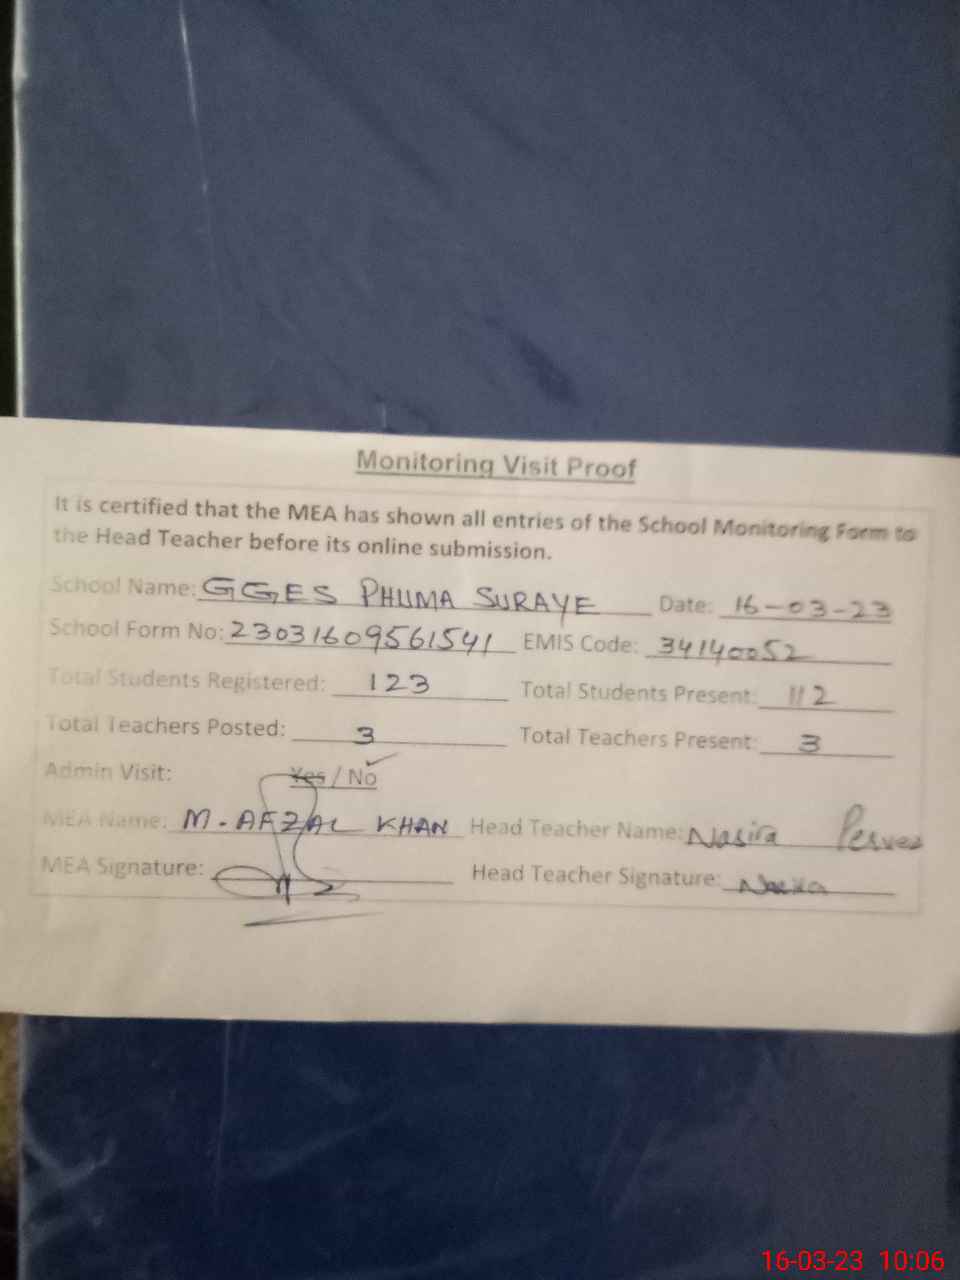 Monitoring Visit Proof
It is certified that the MEA has shown all entries of the School Monitoring Form to
the Head Teacher before its online submission.
School Name: GGES PHUMA SURAYE Date: 16-03-23
School Form No: 23031609561541 EMIS Code: 34140052
Total Students Registered: 123 Total Students Present: 112
Total Teachers Posted: 3 Total Teachers Present: 3
Admin Visit: Yes / No
MEA Name: M. AFZAL KHAN Head Teacher Name: Nasira Pervez
MEA Signature: Head Teacher Signature: Nasira
16-03-23 10:06